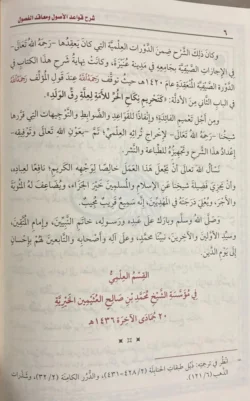 شرح قواعد الأصول ومعاقد الفصول
٦
وكان ذلك الشرح ضمن الدَّورات العِلميَّة التي كانَ يَعقِدها -رَحِمَهُ اللهُ تَعَالَى-
في الإجازات الصَّيفيَّة بجامعِهِ في مَدينة عُنَيْزَة، وكانت نهايةُ شرحِ هذا الكِتابِ في
الدَّورة الصَّيفيَّة عامَ ١٤٢٠هـ حيثُ توقَّف رَحِمَهُ اللهُ عندَ قولِ المؤلِّفِ رَحِمَهُ اللهُ
في الباب الثَّاني مِن الأدلَّة: «كتَحريمِ نِكاحِ الحُرِّ للأَمَةِ لِعِلَّةِ رِقِّ الوَلَدِ».
ومِن أجلِ تَعميمِ الفائدةِ؛ وإنفاذًا للقَواعدِ والضَّوابطِ والتَّوجيهاتِ الَّتي قرَّرها
شيخُنا -رَحِمَهُ اللهُ تَعَالَى- لإخراجِ تُراثِهِ العِلميِّ؛ تمَّ -بعَونِ اللهِ تَعَالَى وتَوفيقِه-
إعدادُ هذا الشَّرحِ وتَجهيزُهُ للطِّباعةِ والنَّشرِ.
نَسألُ اللهَ تَعَالَى أن يَجعلَ هذا العمَلَ خالصًا لِوجهِه الكَريمِ؛ نافعًا لعِبادِه،
وأنْ يَجزِيَ فَضيلةَ شيخِنا عنِ الإسلامِ والمسلمينَ خَيرَ الجزَاء، ويُضاعِفَ لهُ المثُوبةَ
والأَجرَ، ويُعلِيَ دَرجتَهُ في المَهديِّينَ، إنَّه سَميعٌ قَريبٌ مُجيبٌ.
وصلَّى اللهُ وسلَّم وبارَك علَى عبدِه ورَسولِه، خاتَمِ النَّبيِّينَ، وإمامِ المتَّقينَ،
وسيِّدِ الأوَّلينَ والآخِرينَ، نبيِّنا محمَّدٍ، وعلَى آلِه وأصحابِه والتَّابعينَ لهُم بإحسانٍ
إلَى يَومِ الدِّينِ.
القِسْمُ العِلْمِيُّ
فِي مُؤَسَّسَةِ الشَّيْخِ مُحَمَّدِ بْنِ صَالِحٍ العُثَيْمِين الخَيْرِيَّةِ
٢٠ جُمَادَى الآخِرَة ١٤٣٦هـ
انظُر في ترجمتِه: ذَيل طبقاتِ الحنابلة (٢/ ٤٢٨-٤٣١)، والدُّرَر الكامنة (٢/ ٣٢)، وشذَرات
الذَّهب (٦/ ١٢١).